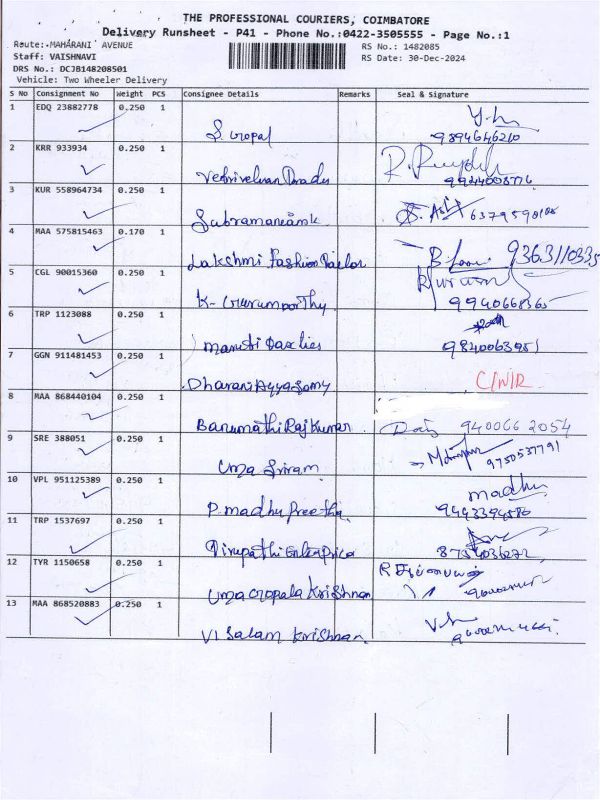 THE PROFESSIONAL COURIERS, COIMBATORE
Delivery Runsheet - P41 - Phone No.:0422-3505555 - Page No.:1
Route: MAHARANI AVENUE
RS No.: 1482085
Staff: VAISHNAVI
RS Date: 30-Dec-2024
DRS No.: DCJB148208501
Vehicle: Two Wheeler Delivery
S No Consignment No Weight PCS Consignee Details Remarks Seal & Signature
1 EDQ 23882778 0.250 1
S. Gopal 9894646210
2 KRR 933934 0.250 1
3 KUR 558964734 0.250 1
4 MAA 575815463 0.170 1
Lakshmi Fashion
5 CGL 90015360 0.250 1
K- Gurumoorthy 9940668365
6 TRP 1123088 0.250 1
7 GGN 911481453 0.250 1
Dharani Ayyasamy C/N/R
8 MAA 868440104 0.250 1
Banumathi Raj Kumar 940066 2054
9 SRE 388051 0.250 1
Uma Sriram 9750537791
10 VPL 951125389 0.250 1
P. madhu Preetha madhu
11 TRP 1537697 0.250 1
12 TYR 1150658 0.250 1
Uma Gopala Krishnan
13 MAA 868520883 0.250 1
Krishnan